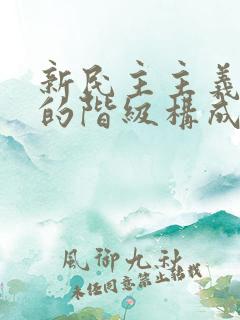 新民主主義
的階級構成
風御九秋
未经同意禁止转载